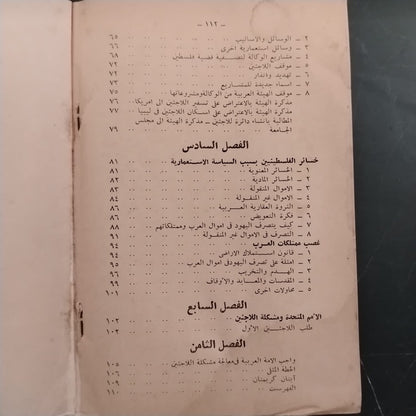 — ١١٢ —
٢ — الوسائل والاساليب .. .. .. .. ٦٥
٣ — وسائل استعمارية اخرى .. .. .. .. ٦٦
٤ — مشاريع الوكالة لتصفية قضية فلسطين .. .. ٦٨
٥ — موقف اللاجئين .. .. .. .. ٧٢
٦ — تهديد وانذار .. .. .. .. ٧٢
٧ — اسماء جديدة للمشاريع .. .. .. .. ٧٣
٨ — موقف الهيئة العربية من الوكالة ومشروعاتها .. ٧٥
مذكرة الهيئة بالاعتراض على تسفير اللاجئين الى امريكا ٧٦
مذكرة الهيئة بالاعتراض على اسكان اللاجئين في ليبيا ٧٧
المطالبة بانشاء دائرة للاجئين — مذكرة الهيئة الى مجلس
الجامعة .. .. .. .. ٧٩
الفصل السادس
خسائر الفلسطينيين بسبب السياسة الاستعمارية .. ٨١
١ — الخسائر المعنوية .. .. .. .. ٨١
٢ — الخسائر المادية .. .. .. .. ٨٢
٣ — الاموال المنقولة .. .. .. .. ٨٣
٤ — الاموال غير المنقولة .. .. .. .. ٨٤
٥ — الثروة العقارية العربية .. .. .. .. ٨٦
٦ — فكرة التعويض .. .. .. .. ٨٦
٧ — كيف يتصرف اليهود في اموال العرب وممتلكاتهم ٨٨
٨ — التصرف في الاموال غير المنقولة .. .. ٩١
غصب ممتلكات العرب .. .. .. .. ٩٤
١ — قانون استملاك الاراضي .. .. .. .. ٩٤
٢ — امثلة على تصرف اليهود في اموال العرب .. ٩٥
٣ — الهدم والتخريب .. .. .. .. ٩٦
٤ — المقدسات والمعابد والاوقاف .. .. ٩٩
٥ — محاولات اخرى .. .. .. .. ١٠١
الفصل السابع
الامم المتحدة ومشكلة اللاجئين .. .. .. ١٠٢
طلب اللاجئين الاول .. .. .. .. ١٠٢
الفصل الثامن
واجب الامة العربية في معالجة مشكلة اللاجئين .. ١٠٥
الخطة المثلى .. .. .. .. ١٠٦
آيتان كريمتان .. .. .. .. ١٠٩
الفهرست .. .. .. .. ١١٠